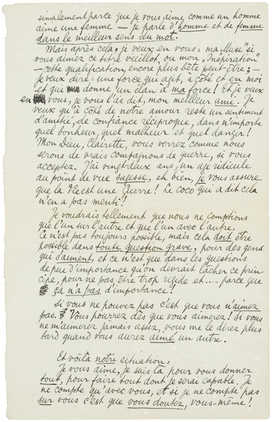 simplement parce que je vous aime comme un homme
aime une femme — je parle d'homme et de femme
dans le meilleur sens du mot.
Mais après cela je veux en vous: ma "
vous aimez ce titre vieillot, ou mon "inspiration"
— cette qualification encore plus bête peut-être: —
je veux dire: une force qui agit, à côté et en moi
et que donne un élan à ma force! Et je veux
en vous, je vous l'ai dit, mon meilleur ami. Je
veux qu'à côté de notre amour reste un sentiment
d'amitié, de confiance réciproque, dans n'importe
quel bonheur, quel malheur et quel danger!
Mon Dieu, Clairette, vous verrez comme nous
serons de vrais compagnons de guerre, si vous
acceptez. J'ai vingt-deux ans, un âge ridicule
au point de vue sagesse, et bien, je vous assure
que la Vie est une Guerre! Le coco qui a dit cela
n'en a pas menti!
Je voudrais tellement que nous ne comptions
que l'un sur l'autre et que l'un avec l'autre.
Ce n'est pas toujours possible, mais cela doit être
possible dans toute question grave, pour des gens
qui s'aiment, et ce n'est que dans les questions
de peu d'importance qu'on devrait lâcher ce prin-
cipe, pour ne pas être trop rigide et.... parce que
ça n'a pas d'importance!
Si vous ne pouvez pas c'est que vous n'aimez
pas. Vous pourrez dès que vous aimerez! Si vous
ne m'aimerez jamais assez, vous me le direz plus
tard quand vous aurez aimé un autre.
Et voilà notre situation.
Je vous aime, je suis là pour vous donner
tout, pour faire tout dont je serai capable. Je
ne compte qu'avec vous, et si je ne compte pas
sur vous c'est que vous doutez, vous-même!